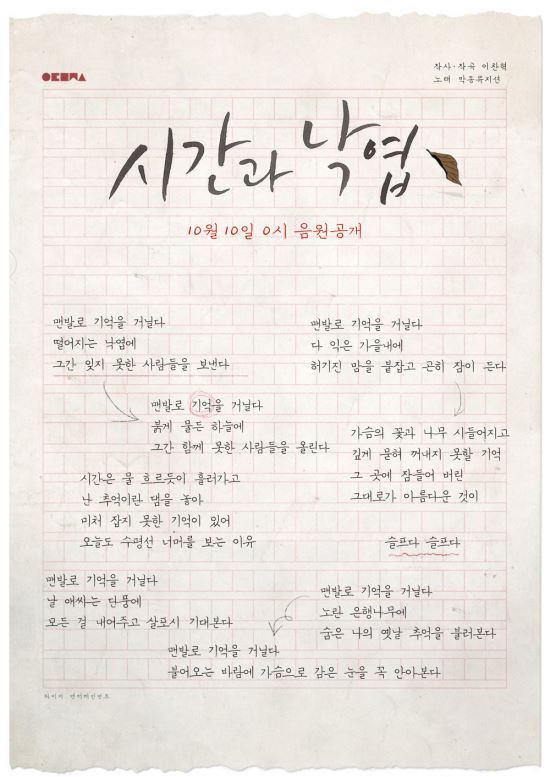 작사·작곡 이찬혁
노래 악동뮤지션
시간과 낙엽
10월 10일 0시 음원공개
맨발로 기억을 거닐다
떨어지는 낙엽에
그간 잊지 못한 사람들을 보낸다
맨발로 기억을 거닐다
붉게 물든 하늘에
그간 함께 못한 사람들을 올린다
시간은 물 흐르듯이 흘러가고
난 추억이란 댐을 놓아
미처 잡지 못한 기억이 있어
오늘도 수평선 너머를 보는 이유
맨발로 기억을 거닐다
날 애싸는 단풍에
모든 걸 내어주고 살포시 기대본다
맨발로 기억을 거닐다
다 익은 가을내에
허기진 맘을 붙잡고 곤히 잠이 든다
가슴의 꽃과 나무 시들어지고
깊게 묻혀 꺼내지 못할 기억
그 곳에 잠들어 버린
그대로가 아름다운 것이
슬프다 슬프다
맨발로 기억을 거닐다
노란 은행나무에
숨은 나의 옛날 추억을 불러본다
맨발로 기억을 거닐다
불어오는 바람에 가슴으로 감은 눈을 꼭 안아본다
와이지 엔터테인먼트